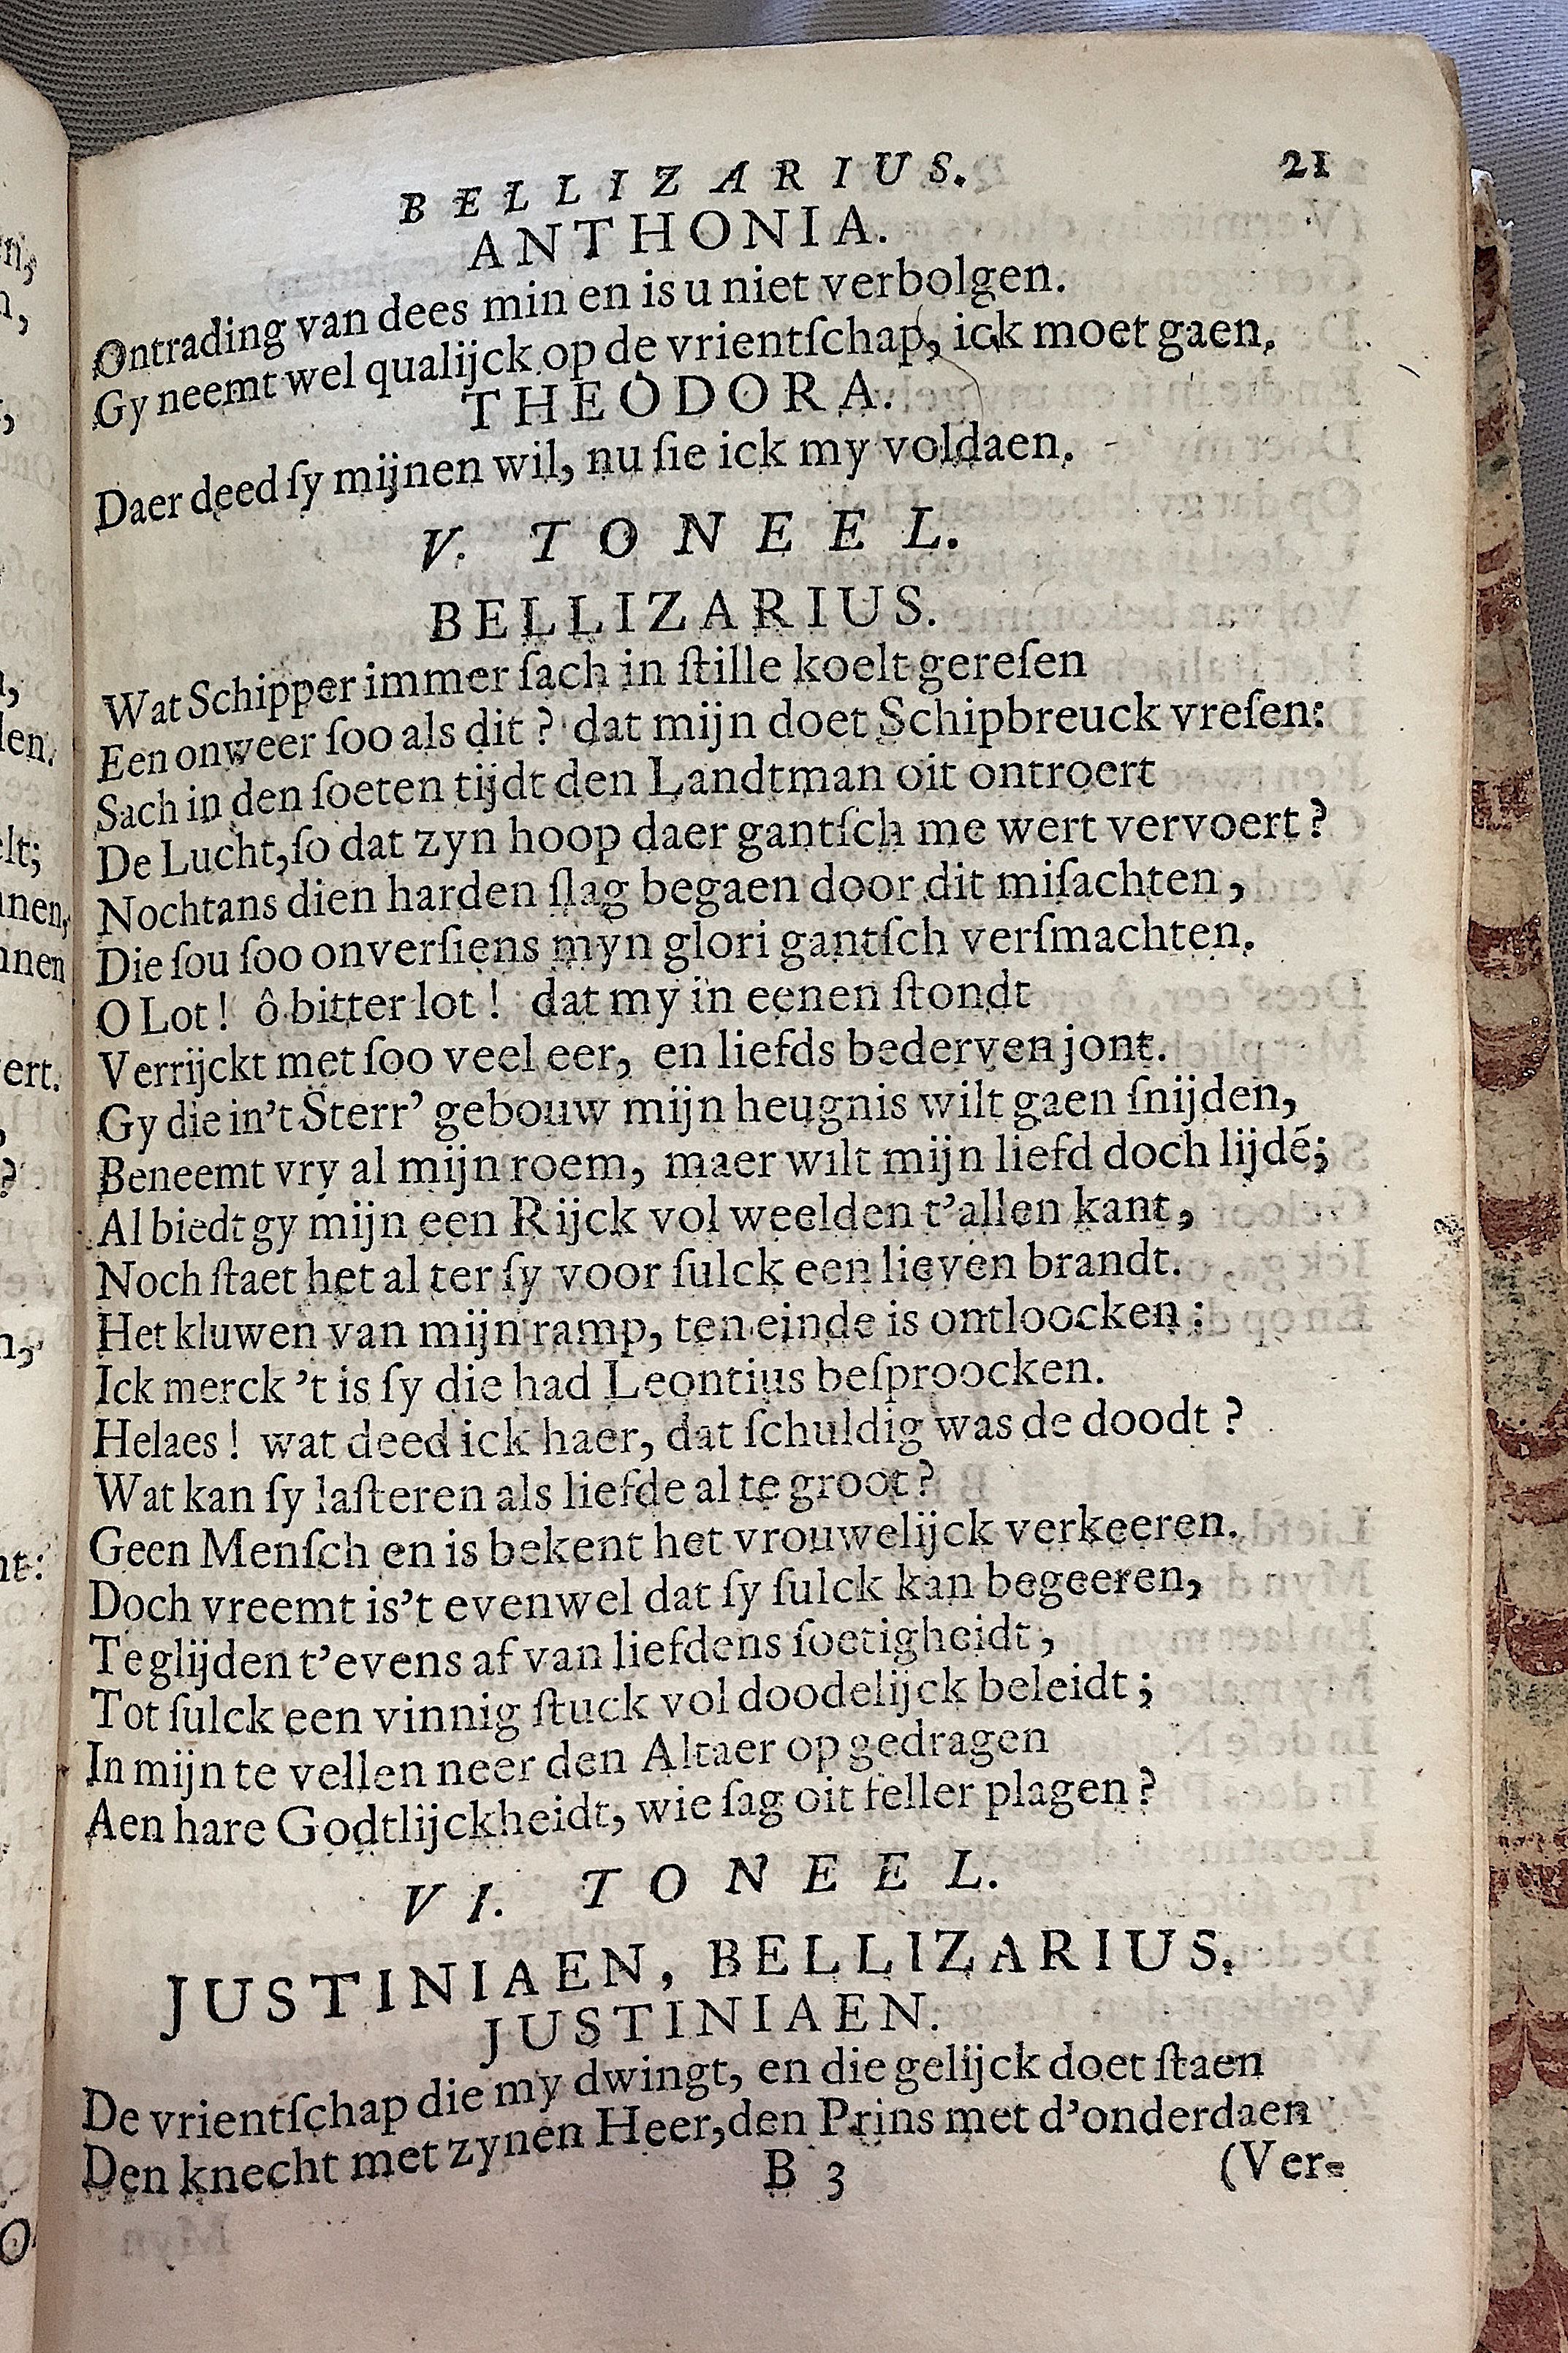 BELLIZARIUS. 21
ANTHONIA.
Ontrading van dees min en is u niet verbolgen.
Gy neemt wel qualijck op de vrientſchap, ick moet gaen.
THEODORA.
Daer deed ſy mijnen wil, nu ſie ick my voldaen.
V. TONEEL.
BELLIZARIUS.
Wat Schipper immer ſach in ſtille koelt gereſen
Een onweer ſoo als dit? dat mijn doet Schipbreuck vreſen:
Sach in den ſoeten tijdt den Landtman oit ontroert
De Lucht, ſo dat zyn hoop daer gantſch me wert vervoert?
Nochtans dien harden ſlag begaen door dit miſachten,
Die ſou ſoo onverſiens myn glori gantſch verſmachten.
O Lot! ô bitter lot! dat my in eenen ſtondt
Verrijckt met ſoo veel eer, en liefds bederven jont.
Gy die in't Sterr' gebouw mijn heugnis wilt gaen ſnijden,
Beneemt vry al mijn roem, maer wilt mijn liefd doch lijdē;
Al biedt gy mijn een Rijck vol weelden t'allen kant,
Noch ſtaet het al ter ſy voor ſulck een lieven brandt.
Het kluwen van mijn ramp, ten einde is ontloocken:
Ick merck 't is ſy die had Leontius beſproocken.
Helaes! wat deed ick haer, dat ſchuldig was de doodt?
Wat kan ſy laſteren als liefde al te groot?
Geen Menſch en is bekent het vrouwelijck verkeeren.
Doch vreemt is't evenwel dat ſy ſulck kan begeeren,
Te glijden t'evens af van liefdens ſoetigheidt,
Tot ſulck een vinnig ſtuck vol doodelijck beleidt;
In mijn te vellen neer den Altaer op gedragen
Aen hare Godtlijckheidt, wie ſag oit feller plagen?
VI. TONEEL.
JUSTINIAEN, BELLIZARIUS.
JUSTINIAEN.
De vrientſchap die my dwingt, en die gelijck doet ſtaen
Den knecht met zynen Heer, den Prins met d'onderdaen
B 3 (Ver-